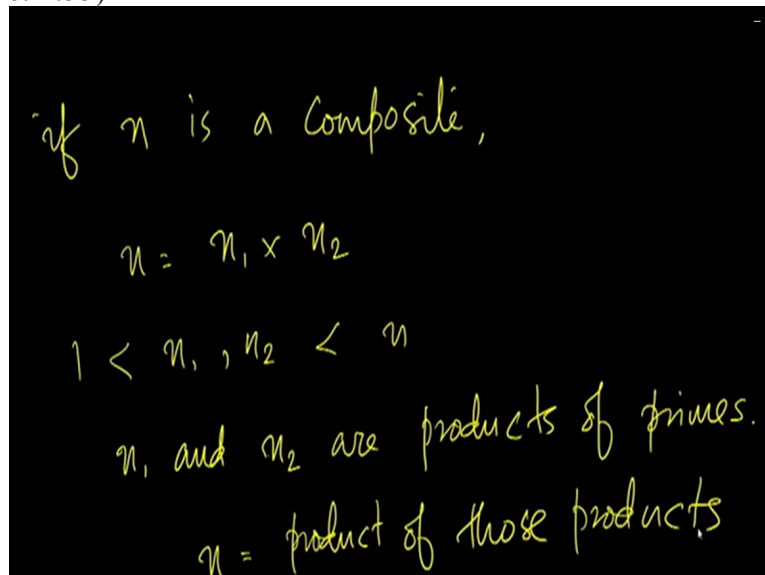 if n is a composite,
n = n₁ × n₂
1 < n₁, n₂ < n
n₁ and n₂ are products of primes.
n = product of those products